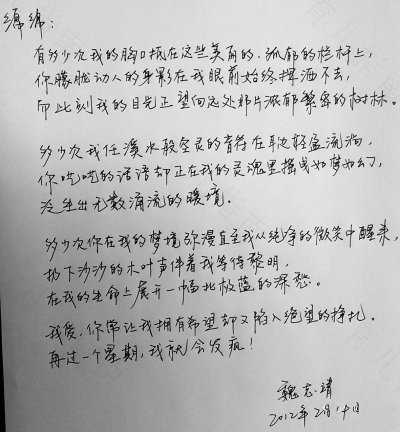 绵绵：
有多少次我的胸口抵在这些美丽的、孤郁的栏杆上，
你朦胧动人的身影在我眼前始终挥洒不去，
而此刻我的目光正望向远处那片浓郁繁密的树林。
多少次我任溪水般空灵的音符在耳边轻盈流淌，
你呓呓的话语却正在我的灵魂里摇曳如梦如幻，
泛生出无数涌流的暖境。
多少次你在我的梦境弥漫直至我从纯净的微笑中醒来，
枕下沙沙的木叶声伴着我等待黎明，
在我的生命上展开一幅北极蓝的深愁。
我爱，你常让我拥有希望却又陷入绝望的挣扎。
再过一个星期，我就会发疯！
魏志靖
2012年2月14日